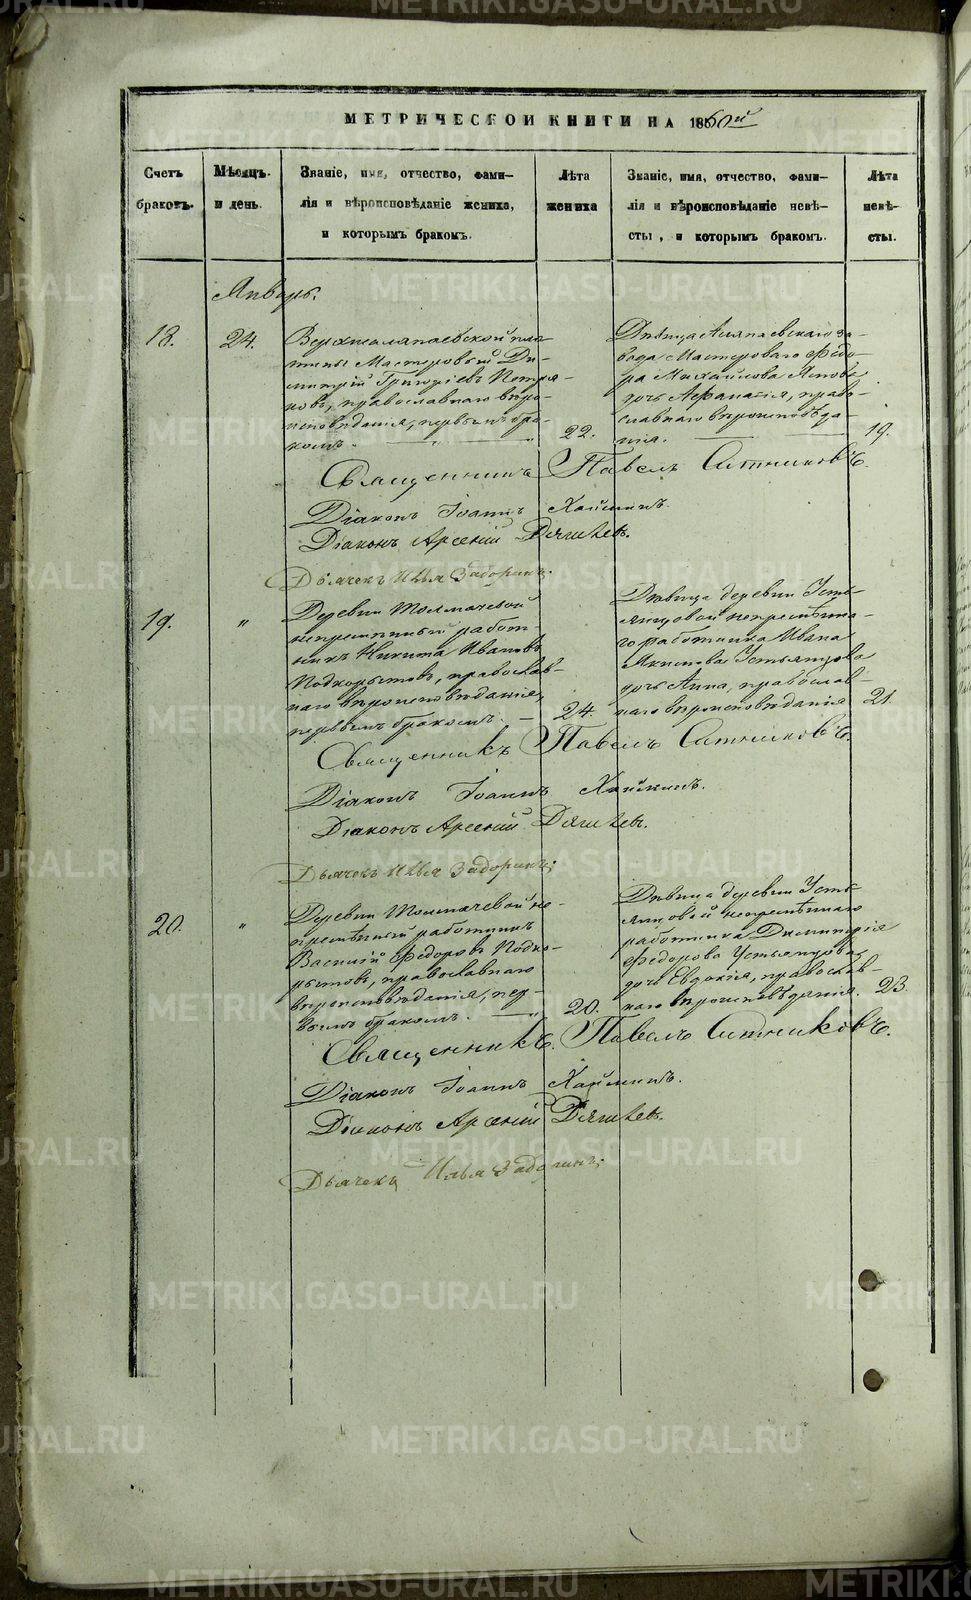 МЕТРИЧЕСКОЙ КНИГИ НА 1860й
Счетъ браковъ.
Мѣсяцъ и день.
Званіе, имя, отчество, фами-
лія и вѣроисповѣданіе жениха,
и которымъ бракомъ.
Лѣта жениха
Званіе, имя, отчество, фами-
лія и вѣроисповѣданіе невѣ-
сты, и которымъ бракомъ.
Лѣта невѣ-
сты.
Январь.
18.
24.
Верхнеалапаевской пло
тины Мастеровый Ди-
митрій Григорьевъ Петря-
ковъ, православнаго вѣро-
исповѣданія, первымъ бра-
комъ.
22.
Дѣвица Алапаевскаго за-
вода Мастероваго Ѳедо-
ра Михайлова
дочь Афанасія, право-
славнаго вѣроисповѣда-
нія.
19.
Священникъ Павелъ Ситниковъ.
Діаконъ Іоаннъ Хайминъ.
Діаконъ Арсеній Дягилевъ.
Дьячекъ Илья Задоринъ.
19.
"
Деревни Толмачевой
непремѣнный работ-
никъ Никита Ивановъ
Подкорытовъ, православ-
наго вѣроисповѣданія,
первымъ бракомъ.
24.
Дѣвица деревни Усть-
янцовой непремѣнна-
го работника Ивана
Акилова Устьянцова
дочь Анна, православ-
наго вѣроисповѣданія
21.
Священникъ Павелъ Ситниковъ.
Діаконъ Іоаннъ Хайминъ.
Діаконъ Арсеній Дягилевъ.
Дьячекъ Илья Задоринъ;
20.
"
Деревни Толмачевой не-
премѣнный работникъ
Василій Ѳедоровъ Подко-
рытовъ, православнаго
вѣроисповѣданія, пер-
вымъ бракомъ.
20.
Дѣвица деревни Усть-
янцовой непремѣннаго
работника Димитрія
Ѳедорова Устьянцова
дочь Евдокія, православ-
наго вѣроисповѣданія.
23.
Священникъ. Павелъ Ситниковъ.
Діаконъ Іоаннъ Хайминъ.
Діаконъ Арсеній Дягилевъ.
Дьячекъ Илья Задоринъ;
METRIKI.GASO-URAL.RU